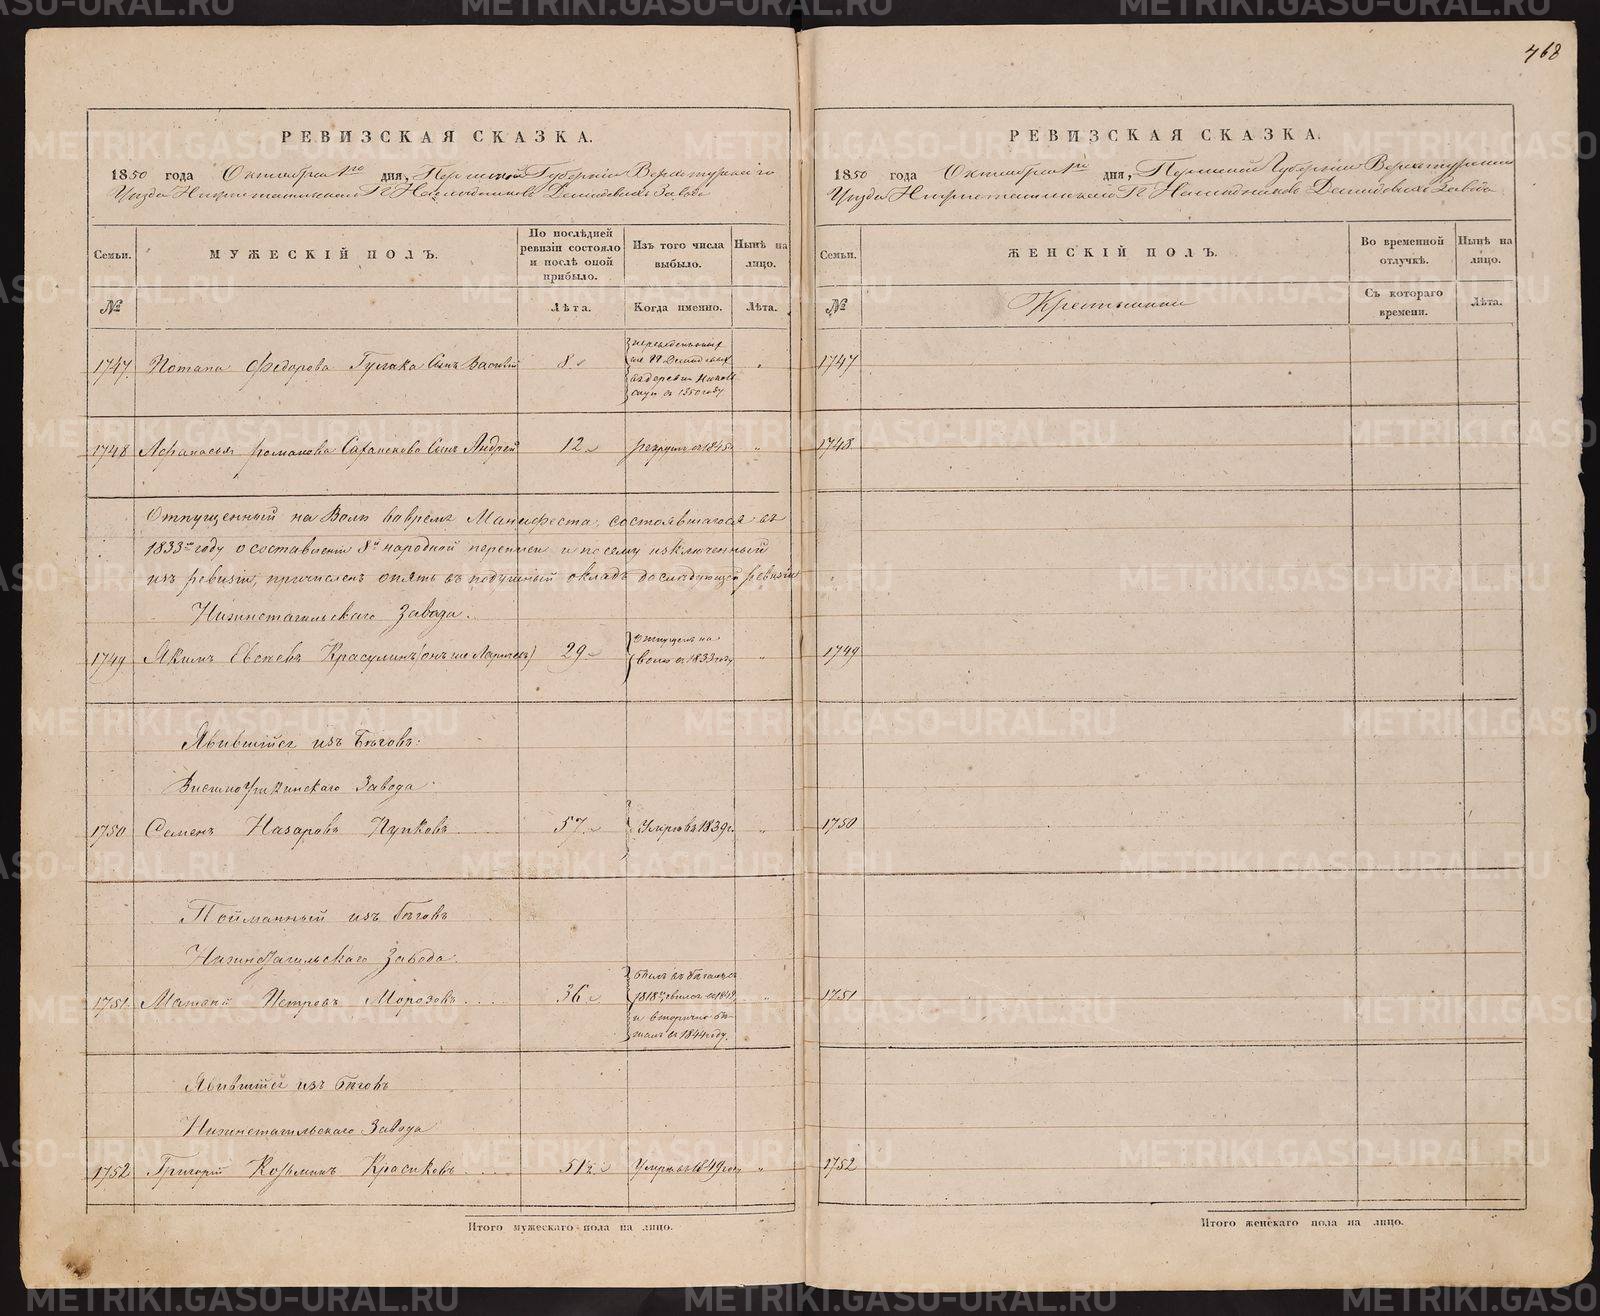 468
РЕВИЗСКАЯ СКАЗКА.
1850 года Октября 1го дня, Пермской Губернiи Верхотурскаго
Уѣзда Нижнетагильскаго Гг. Наслѣдниковъ Демидовыхъ Завода
Семьи.
МУЖЕСКIЙ ПОЛЪ.
По послѣдней ревизiи состояло и послѣ оной прибыло.
Изъ того числа выбыло.
Нынѣ на лицо.
№
Лѣта.
Когда именно.
Лѣта.
1747. Потапа Федорова Сынъ Василiй 8
въ 1850 году
1748 Афанасья Романова Сынъ Андрей 12 "
1749
Отпущенный на Волю во время Манифеста, состоявшагося въ
1833мъ году о составленiи 8й народной переписи и по сему изключенный
изъ ревизiи, причисленъ опять въ подушный окладъ до слѣдующей ревизiи
Нижнетагильскаго Завода.
Якимъ Евсѣевъ Красулинъ (онъ же Ларичевъ) 29
Отпущенъ на
волю въ 1833 году "
Явившiйся изъ Бѣговъ:
Висимоуткинскаго Завода
1750 Семенъ Назаровъ Пупковъ 57
Умеръ въ 1839 г. "
Пойманный изъ бѣговъ
Нижнетагильскаго Завода.
1751. Матвѣй Петровъ Морозовъ 36
былъ въ бѣгахъ съ
1818го, явился въ 1842
и вторично бѣ-
жалъ въ 1844 году. "
Явившiйся изъ бѣговъ
Нижнетагильскаго Завода
1752 Григорiй Козьминъ Красиковъ 51½
Умеръ въ 1849 году "
Итого мужескаго пола на лицо.
РЕВИЗСКАЯ СКАЗКА.
1850 года Октября 1го дня, Пермской Губернiи Верхотурскаго
Уѣзда Нижнетагильскаго Гг. Наслѣдниковъ Демидовыхъ Завода
Семьи.
ЖЕНСКIЙ ПОЛЪ.
Во временной отлучкѣ.
Нынѣ на лицо.
№
Крестьянки
Съ котораго времени.
Лѣта.
1747
1748
1749
1750
1751
1752
Итого женскаго пола на лицо.
METRIKI.GASO-URAL.RU